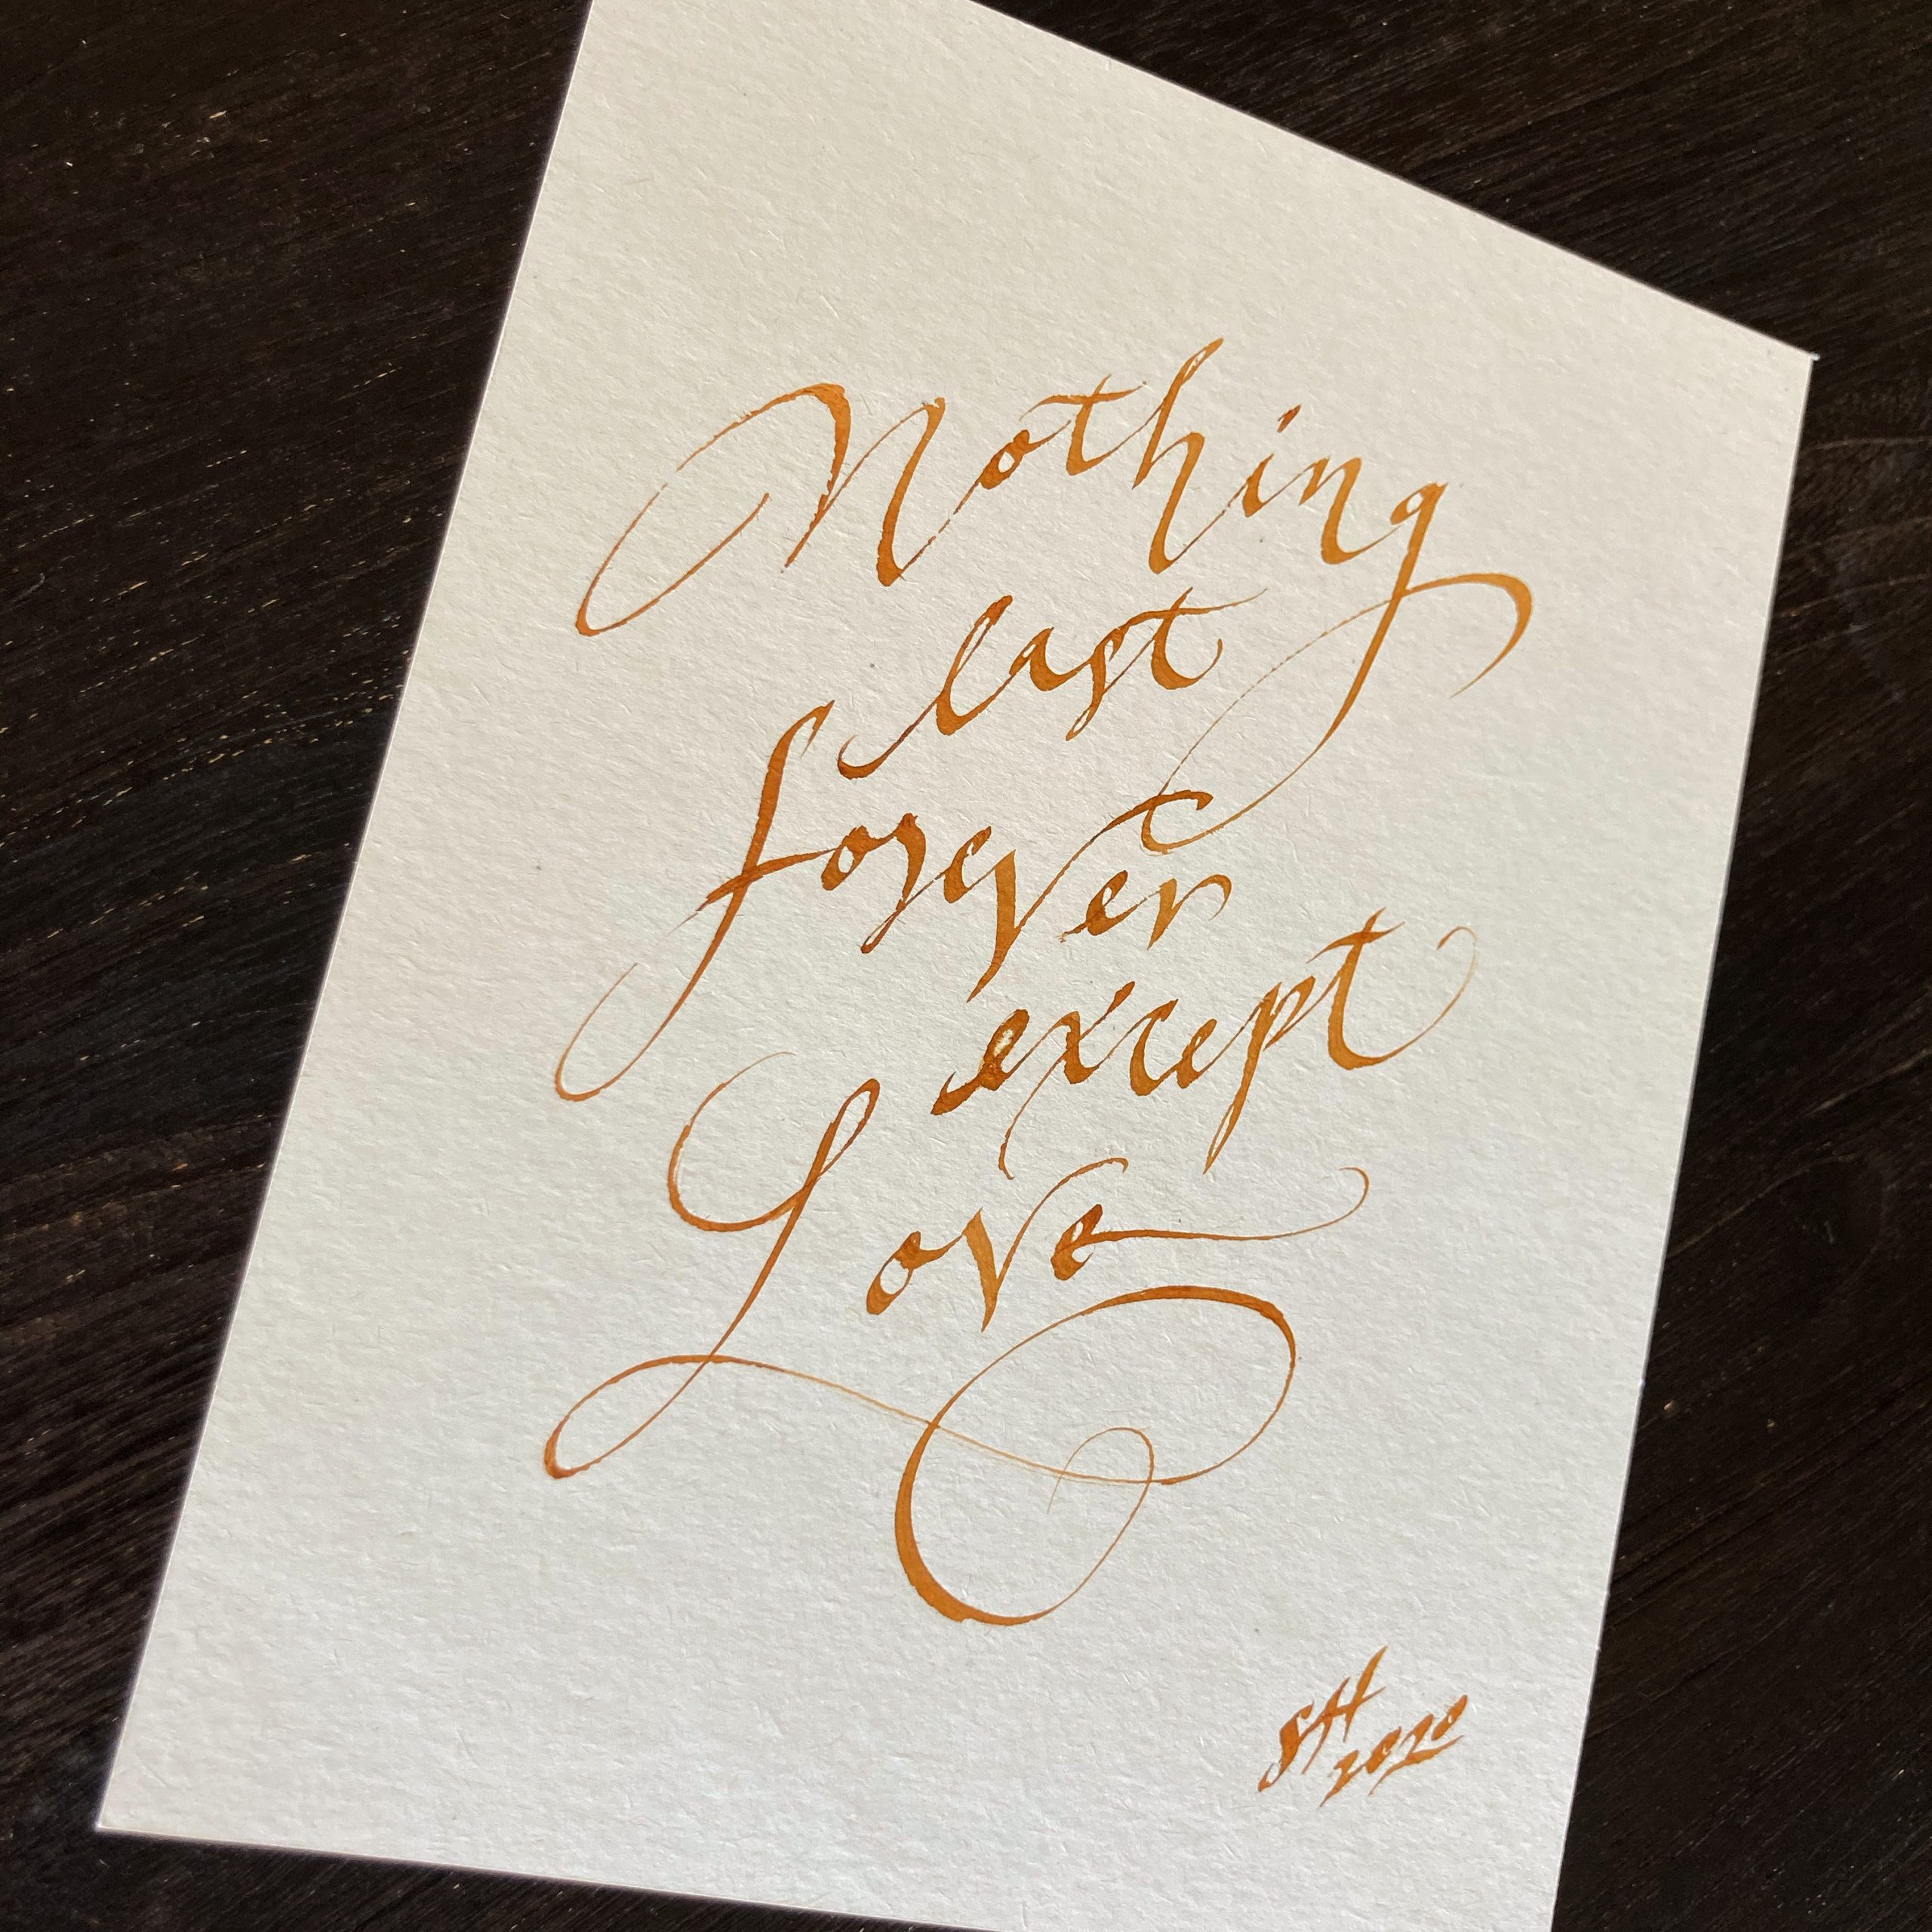 Nothing
last
forever
except
Love
SH
2020